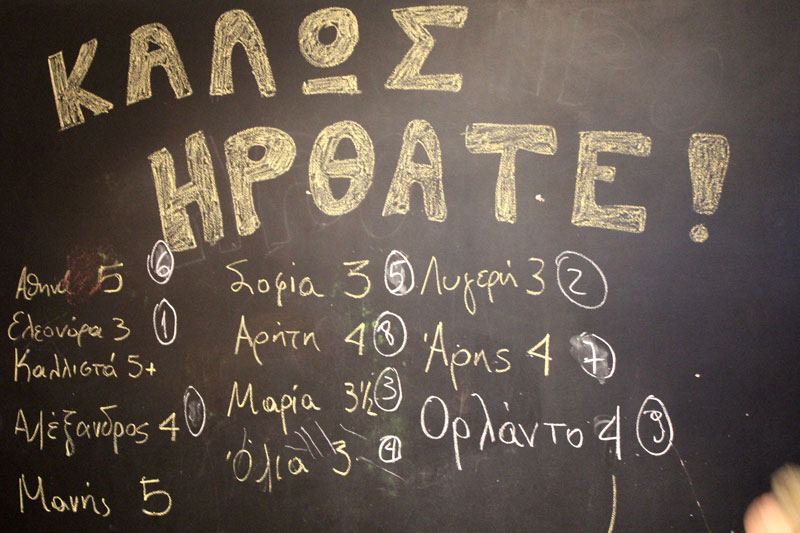 ΚΑΛΩΣ
ΗΡΘΑΤΕ!
Αθηνά 5 6
Ελεονόρα 3 1
Καλλιστά 5+
Αλέξανδρος 4
Μανής 5
Σοφία 3 5
Αρήτη 4 8
Μαρία 3½ 3
Όλια 3 4
Λυγερή 3 2
Άρης 4 7
Ορλάντο 4 9